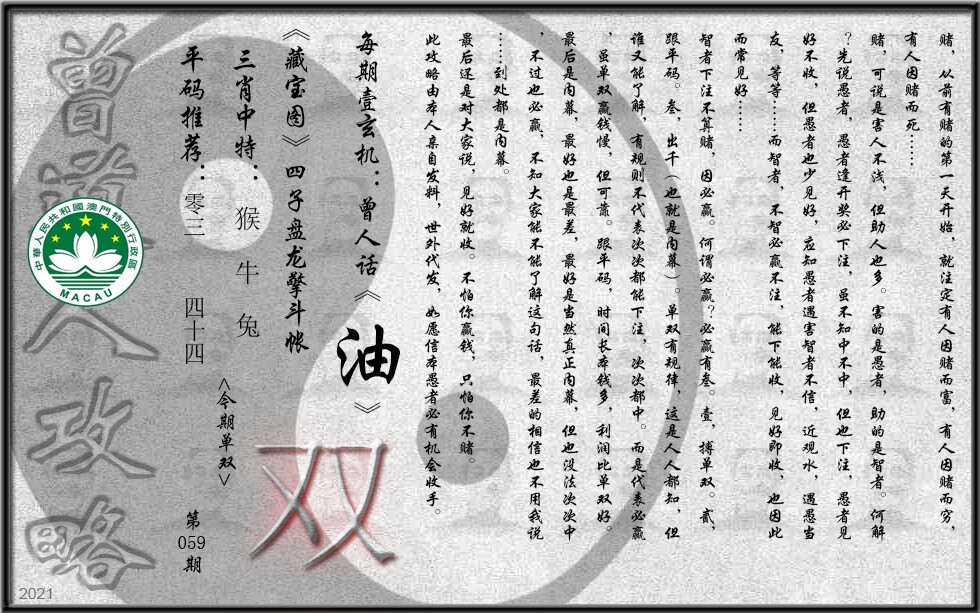 赌，从前有赌的第一天开始，就注定有人因赌而富，有人因赌而穷，
有人因赌而死……
赌，可说是害人不浅，但助人也多。害的是愚者，助的是智者。何解
？先说愚者，愚者逢开奖必下注，虽不知中不中，但也下注，愚者见
好不收，但愚者也少见好，应知愚者遇害智者不信，近观水，遇愚当
友，等等……而智者，不智必赢不注，能下能收，见好即收，也因此
而常见好……
智者下注不算赌，因必赢。何谓必赢？必赢有叁。壹，搏单双。贰，
跟平码。叁，出千（也就是内幕）。单双有规律，这是人人都知，但
谁又能了解，有规则不代表次次都能下注，次次都中。而是代表必赢
，虽单双赢钱慢，但可靠。跟平码，时间长本钱多，利润比单双好。
最后是内幕，最好也是最差，最好是当然真正内幕，但也没法次次中
，不过也必赢，不知大家能不能了解这句话，最差的相信也不用我说
……到处都是内幕。
最后还是对大家说，见好就收。不怕你赢钱，只怕你不赌。
此攻略由本人亲自发料，世外代发，如愿信本愚者必有机会收手。
每期壹玄机：曾人话《油》
《藏宝图》四子盘龙擎斗帐
三肖中特：猴 牛 兔
平码推荐：零三 四十四
<今期单双>
双
第
059
期
曾道人攻略
中華人民共和國澳門特別行政區
MACAU
2021